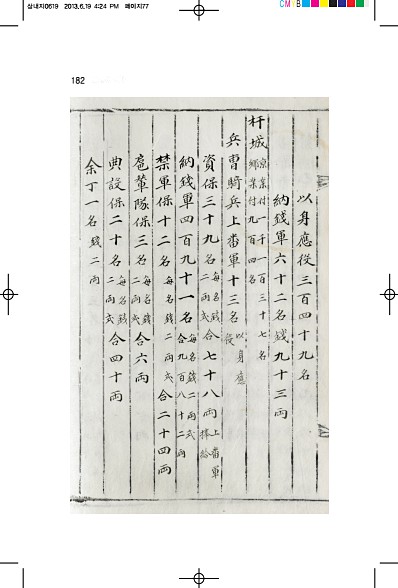 삼내지0619 2013.6.19 4:24 PM 페이지77
CMYB
182
以身應役三百四十九名
納錢軍六十二名錢九十三兩
杆城 京案付一千一百三十七名
鄕案付九百四名
兵曹騎兵上番軍十三名 以身應役
資保三十九名 每名錢二兩式 合七十八兩 上番軍捧給
納錢軍四百九十一名 每名錢二兩式 合九百八十二兩
禁軍保十二名 每名錢二兩式 合二十四兩
扈輦隊保三名 每名錢二兩式 合六兩
典設保二十名 每名錢二兩式 合四十兩
余丁一名 錢二兩